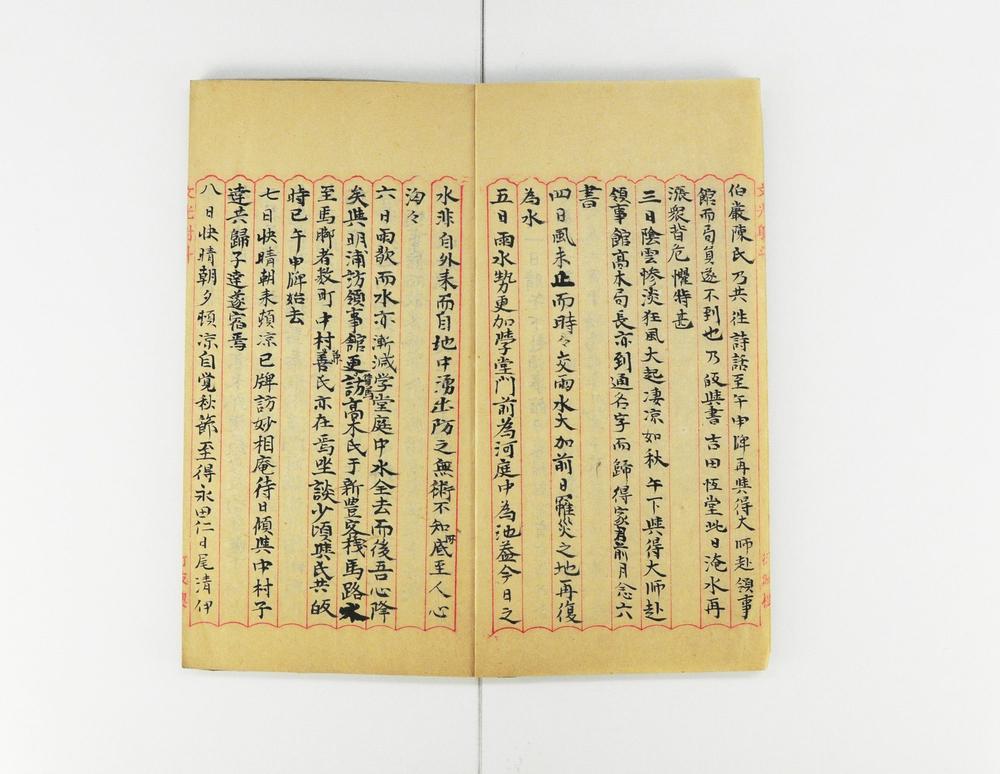 伯巖陳氏乃共往詩話至午申牌再與得大師赴領事
館而局員遂不到也乃皈與書吉田恆堂此日淹水再
漲衆皆危懼特甚
三日陰雲惨淡狂風大起凄凉如秋午下與得大师赴
領事館高木局長亦到通名字而歸得家君前月念六
書
四日風未止而時々交雨水大加前日罹災之地再復
為水
五日雨水勢更加學堂門前為河庭中為池益今日之
水非自外来而自地中湧出防之無術不知所底至人心
洶々
六日雨歇而水亦漸減学堂庭中水全去而後吾心降
矣與明浦訪領事館更訪高木氏于新豊客棧馬路水
至馬脚者数町中村兼善氏亦在焉坐談少頃與氏共皈
時已午申牌始去
七日快晴朝来頗凉已牌訪妙相庵待日傾與中村子
達共歸子達遂宿焉
八日快晴朝夕頓凉自覚秋節至得永田仁日尾清伊